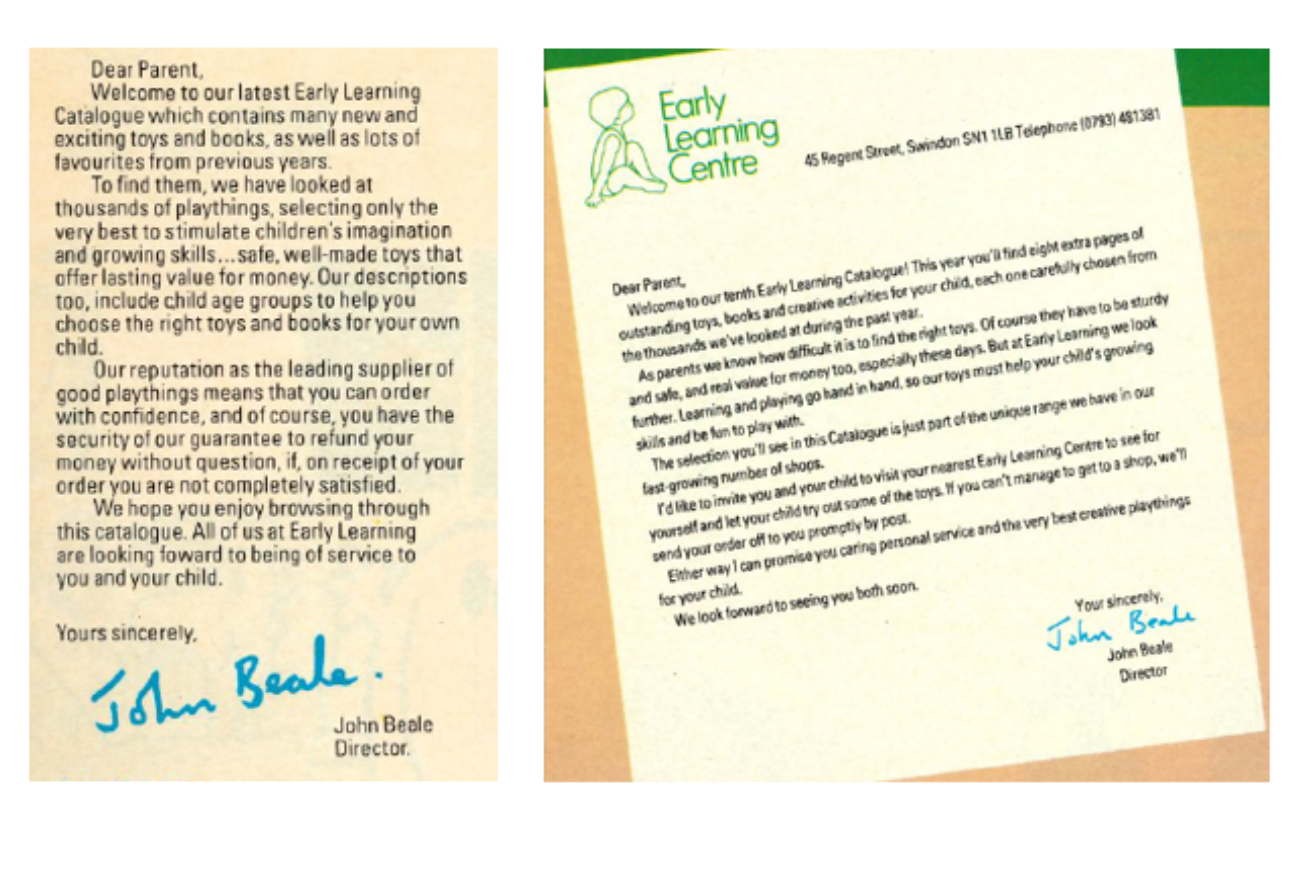 Dear Parent,
Welcome to our latest Early Learning
Catalogue which contains many new and
exciting toys and books, as well as lots of
favourites from previous years.
To find them, we have looked at
thousands of playthings, selecting only the
very best to stimulate children's imagination
and growing skills...safe, well-made toys that
offer lasting value for money. Our descriptions
too, include child age groups to help you
choose the right toys and books for your own
child.
Our reputation as the leading supplier of
good playthings means that you can order
with confidence, and of course, you have the
security of our guarantee to refund your
money without question, if, on receipt of your
order you are not completely satisfied.
We hope you enjoy browsing through
this catalogue. All of us at Early Learning
are looking foward to being of service to
you and your child.
Yours sincerely,
John Beale.
John Beale
Director.
Early
Learning
Centre
45 Regent Street, Swindon SN1 1LB Telephone (0793) 481381
Dear Parent,
Welcome to our tenth Early Learning Catalogue! This year you'll find eight extra pages of
outstanding toys, books and creative activities for your child, each one carefully chosen from
the thousands we've looked at during the past year.
As parents we know how difficult it is to find the right toys. Of course they have to be sturdy
and safe, and real value for money too, especially these days. But at Early Learning we look
further. Learning and playing go hand in hand, so our toys must help your child's growing
skills and be fun to play with.
The selection you'll see in this Catalogue is just part of the unique range we have in our
fast-growing number of shops.
I'd like to invite you and your child to visit your nearest Early Learning Centre to see for
yourself and let your child try out some of the toys. If you can't manage to get to a shop, we'll
send your order off to you promptly by post.
Either way I can promise you caring personal service and the very best creative playthings
for your child.
We look forward to seeing you both soon.
Your sincerely,
John Beale
John Beale
Director